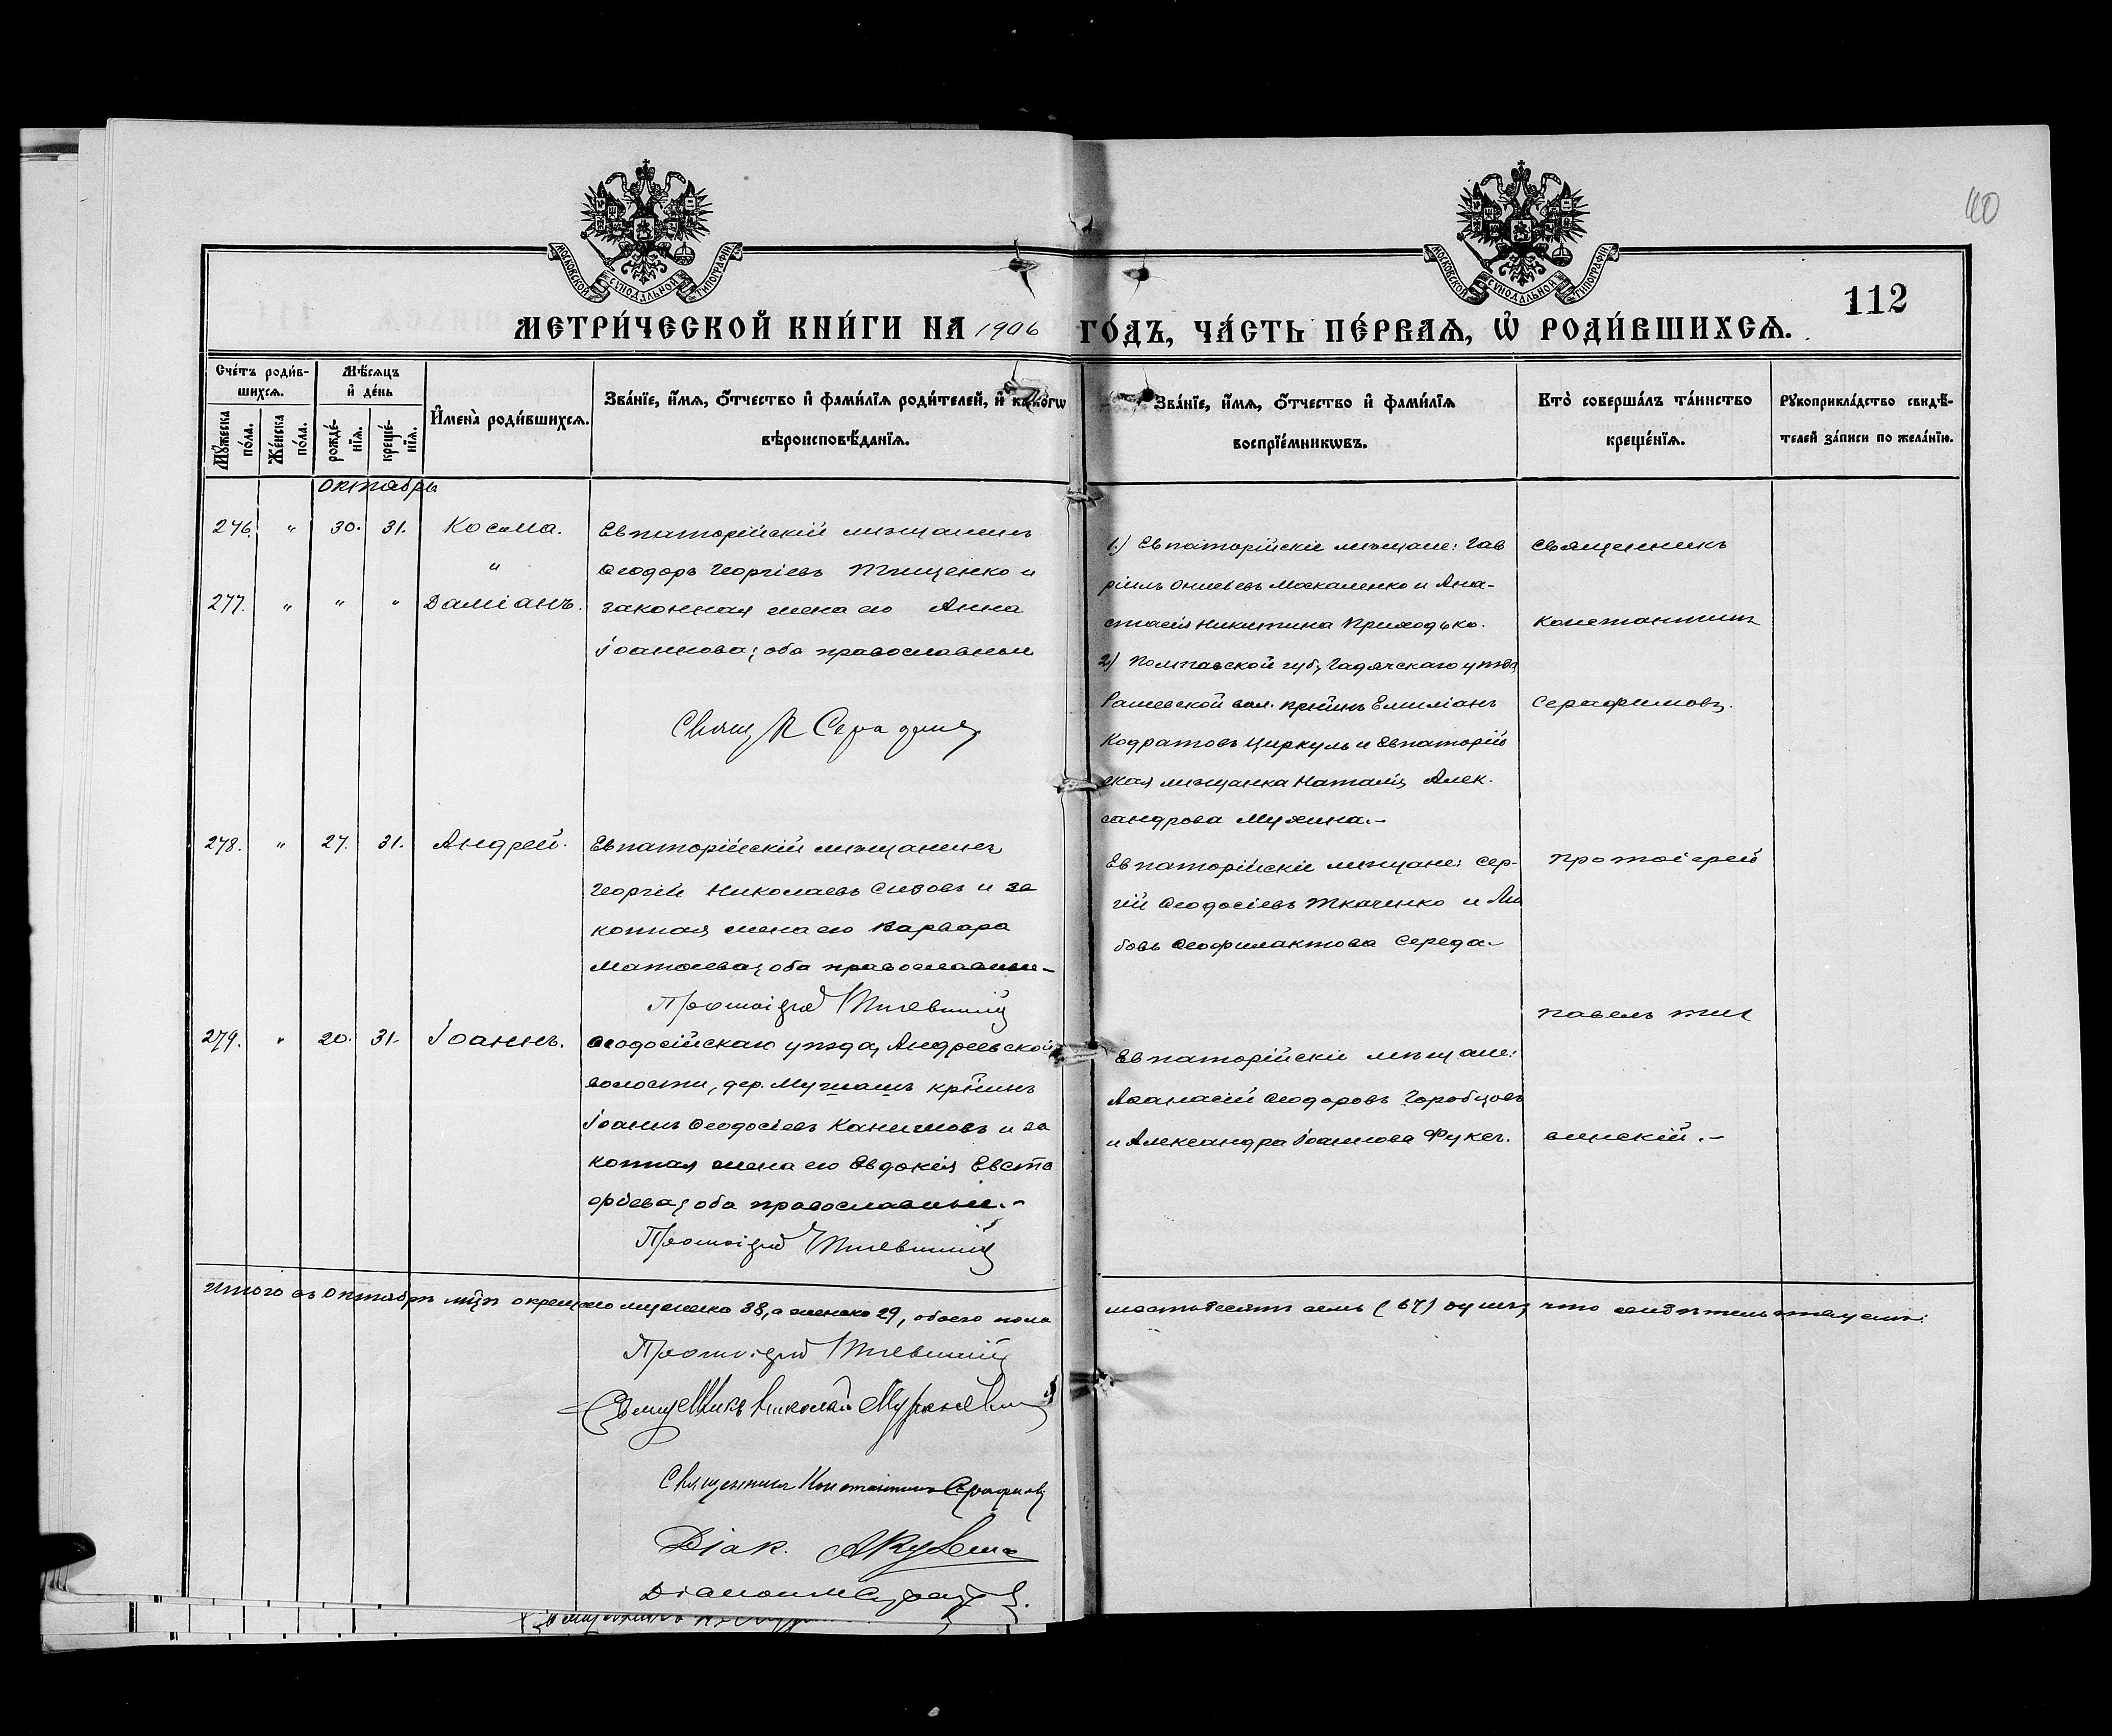 МОСКОВСКОЙ СѴНОДАЛЬНОЙ ТИПОГРАФІИ
МОСКОВСКОЙ СѴНОДАЛЬНОЙ ТИПОГРАФІИ
112
МЕТРИ́ЧЕСКОЙ КНИ́ГИ НА 1906 ГО́ДЪ, ЧА́СТЬ ПЕ́РВАѦ, Ѡ РОДИ́ВШИХСѦ.
Сче́тъ роди́в-
шихсѧ.
Мꙋ́жеска по́ла.
Же́нска по́ла.
Мѣ́сѧцъ
и҆ де́нь
рожде́-
нїѧ.
креще́-
нїѧ.
И҆мена̀ роди́вшихсѧ.
Зва́нїе, и҆́мѧ, ѻ҆́тчество и҆ фамѝлїѧ роди́телей, и҆ како́гѡ
вѣроисповѣ́данїѧ.
Зва́нїе, и҆́мѧ, ѻ҆́тчество и҆ фамѝлїѧ
воспрїе́мникѡвъ.
Кто̀ соверша́лъ та́инство
креще́нїѧ.
Рꙋкоприкла́дство свидѣ́-
телей за́писи по жела́нїю.
Октябрь
276. " 30. 31. Косма.
"
277. " " " Даміанъ.
Евпаторійскій мѣщанинъ
Ѳеодоръ Георгіевъ Тищенко и
законная жена его Анна
Іоаннова; оба православные
Свящ К Серафимов
1.) Евпаторійскіе мѣщане: Гав
ріилъ Москаленко и Ана-
стасія Никитина Приходько.
2) Полтавской губ, Гадячскаго уѣзда,
Рашевской вол. кр҃нинъ Емиліанъ
Кодратовъ Циркуль и Евпаторій
ская мѣщанка Наталія Алек.
сандрова Мухина.-
Священникъ
Константинъ
Серафимовъ.
278. " 27. 31. Андрей.
Евпаторійскій мѣщанинъ
Георгій Николаевъ Сизовъ и за
конная жена его Варвара
Матѳеева; оба православные-
Протоіерей Тихвинскій
Евпаторійскіе мѣщане: Сер-
гій Ѳеодосіевъ Ткаченко и Лю
бовь Ѳеофилактова Середа-
Протоіерей
Павелъ Тих
винскій.-
279. " 20. 31. Іоаннъ.
Ѳеодосійскаго уѣзда, Андреевской
волости, дер. кр҃нинъ
Іоаннъ Ѳеодосіевъ и за
конная жена его Евдокія Евста
фіева; оба православные.-
Протоіерей Тихвинскій
Евпаторійскіе мѣщане:
Аѳанасій Ѳеодоровъ Горобцовъ
и Александра Іоаннова Фукс.
Итого въ Октябрѣ м҃цѣ окрещено мужеска 38, а женска 29, обоего пола
шестьдесятъ семь (67) душъ, что свидѣтельствуемъ:
Протоіерей Тихвинскій
Священникъ Николай
Священникъ Константинъ Серафимовъ
Діак.
Діаконъ